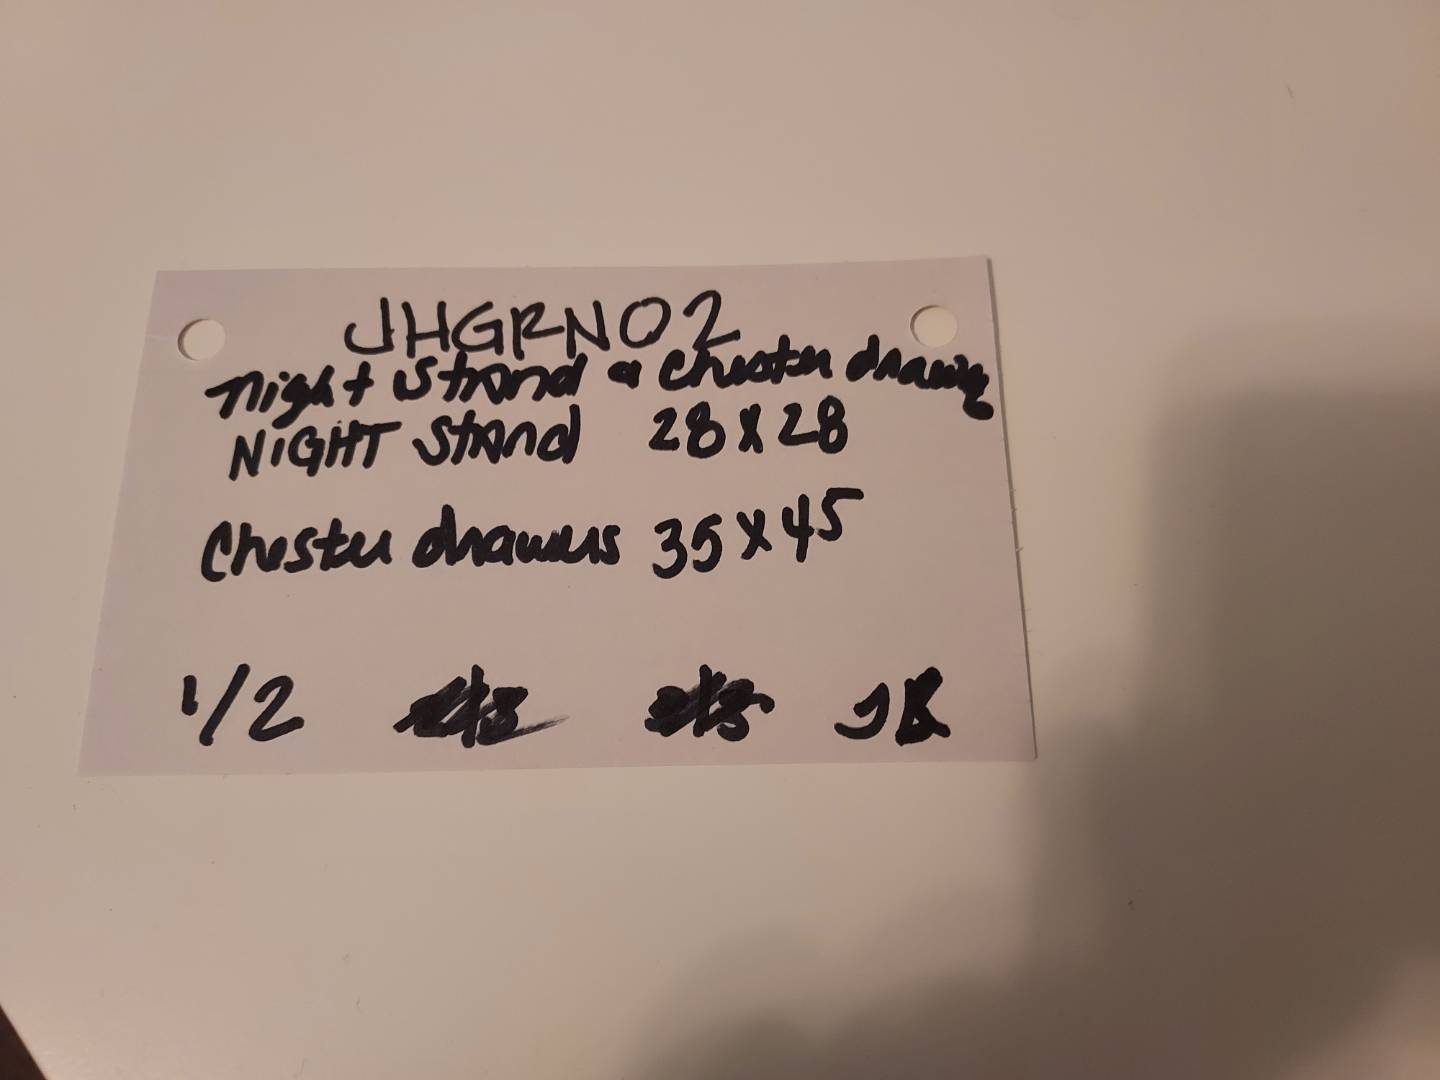 JHGRN02
Night Stand & Chester drawing
NIGHT Stand 28x28
Chester drawers 35x45
1/2 JB